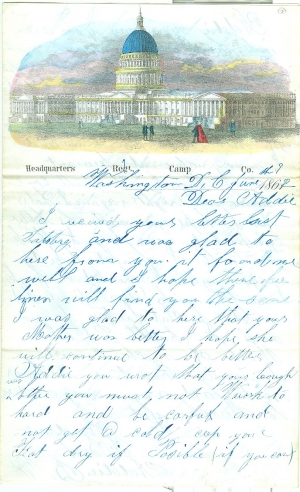 Headquarters Regt Camp Co.
Washington D, C June 9 1862
Dear Addie
I recivd your letter last
and was glad to
here from you it found me
well and I hope these fue
lines will find you the same
I was glad to here that your
Mother was better I hope she
will continue to be better
Addie you wrot that your Cough
you must not Work to
hard and be carful and
not get a cold cep your
Feat dry if Posible (if you can)